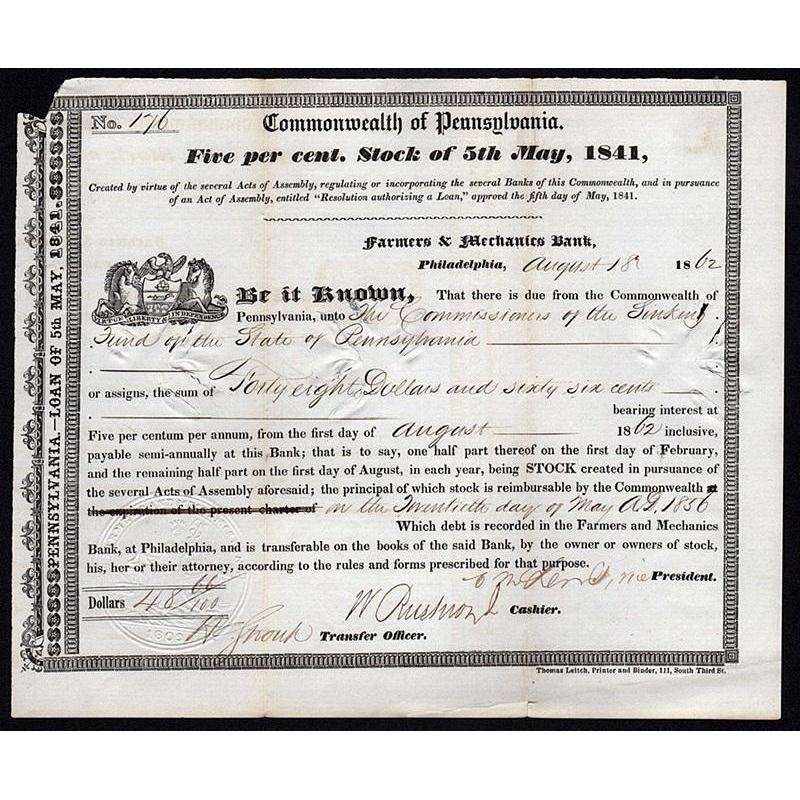 No. 176
Commonwealth of Pennsylvania.
Five per cent. Stock of 5th May, 1841,
Created by virtue of the several Acts of Assembly, regulating or incorporating the several Banks of this Commonwealth, and in pursuance
of an Act of Assembly, entitled "Resolution authorizing a Loan," approved the fifth day of May, 1841.
Farmers & Mechanics Bank,
Philadelphia, August 18 1862
VIRTUE LIBERTY & INDEPENDENCE
Be it Known, That there is due from the Commonwealth of
Pennsylvania, unto The Commissioners of the Sinking
Fund of the State of Pennsylvania
or assigns, the sum of Forty eight Dollars and sixty six cents
bearing interest at
Five per centum per annum, from the first day of August 1862 inclusive,
payable semi-annually at this Bank; that is to say, one half part thereof on the first day of February,
and the remaining half part on the first day of August, in each year, being STOCK created in pursuance of
the several Acts of Assembly aforesaid; the principal of which stock is reimbursable by the Commonwealth at
the expiration of the present charter of on the Twentieth day of May A.D. 1856
Which debt is recorded in the Farmers and Mechanics
Bank, at Philadelphia, and is transferable on the books of the said Bank, by the owner or owners of stock,
his, her or their attorney, according to the rules and forms prescribed for that purpose.
President.
Dollars 48 66/100
W Rushton Jr Cashier.
Transfer Officer.
Thomas Leitch, Printer and Binder, 111, South Third St.
PENNSYLVANIA.—LOAN OF 5th MAY, 1841.
1809